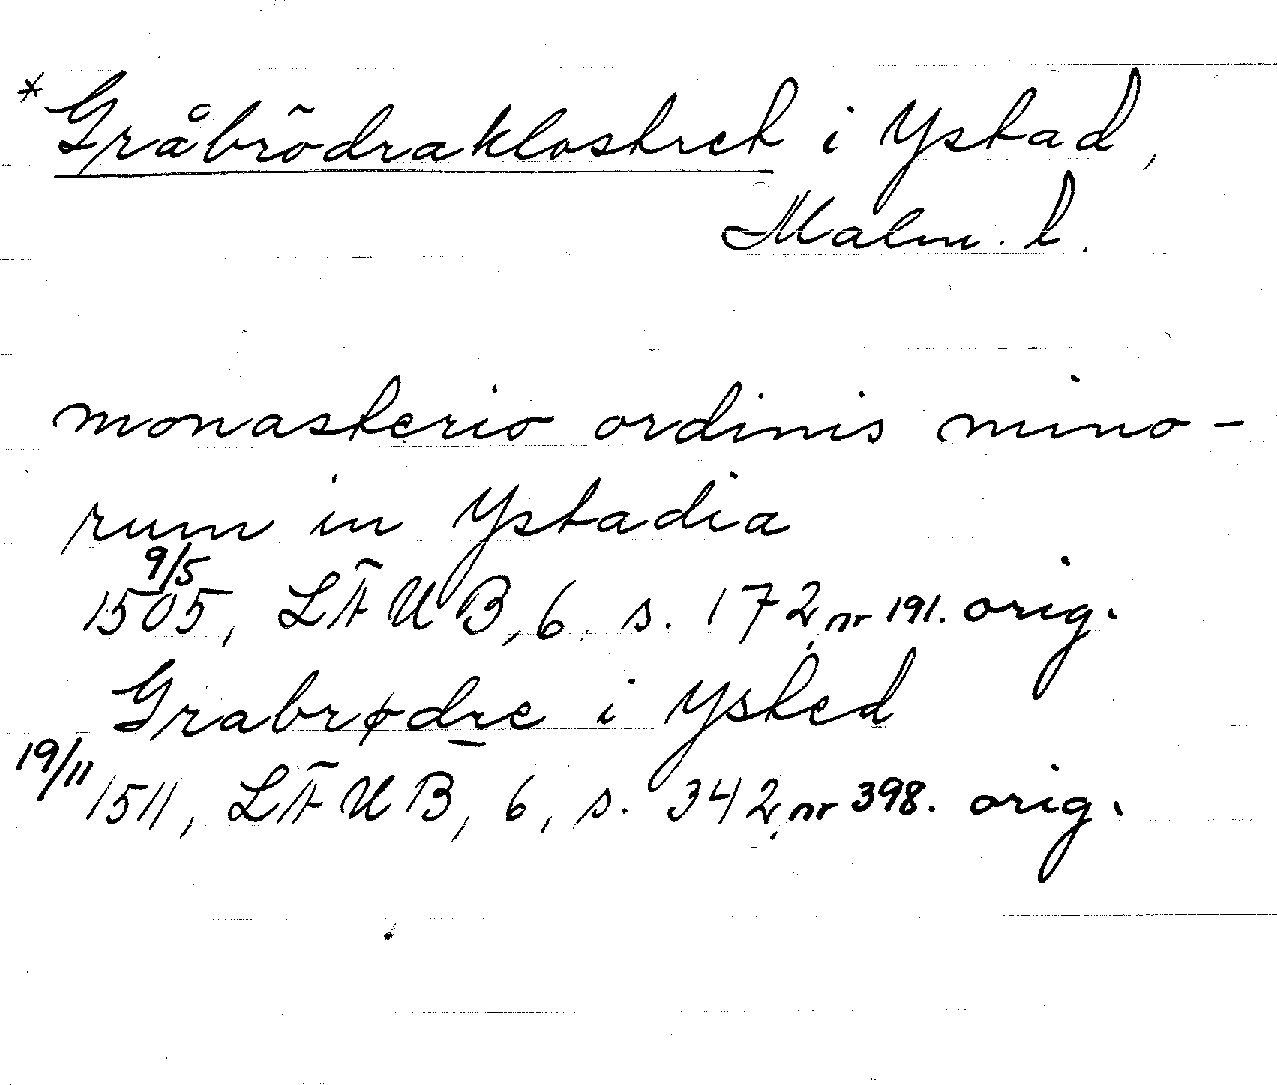 * Gråbrödraklostret i Ystad,
Malm. l.
monasterio ordinis mino-
rum in Ystadia
9/5
1505, LÄUB, 6 s. 172, nr 191. orig.
Grabrødre i Ysted
19/11 1511, LÄUB, 6, s. 342, nr 398. orig.